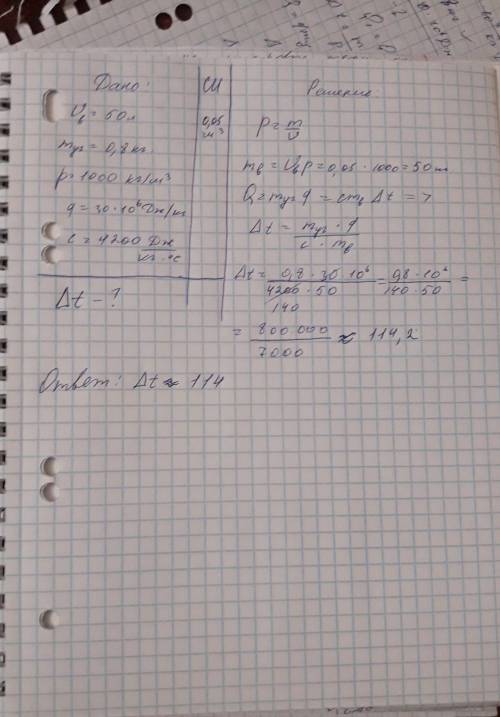 Дано:
V_в = 50 л
m_уг = 0,8 кг
ρ = 1000 кг/м³
q = 30 · 10⁶ Дж/кг
c = 4200 Дж/кг·°С
Δt - ?
СИ
0,05 м³
Решение:
ρ = m/v
m_в = V_в ρ = 0,05 · 1000 = 50 кг
Q = m_уг q = cm_в Δt = >
Δt = m_уг · q / c · m_в
Δt = 0,8 · 30 · 10⁶ / 4200 · 50 = 0,8 · 10⁶ / 140 · 50 =
140
= 800 000 / 7000 ≈ 114,2
Ответ: Δt ≈ 114